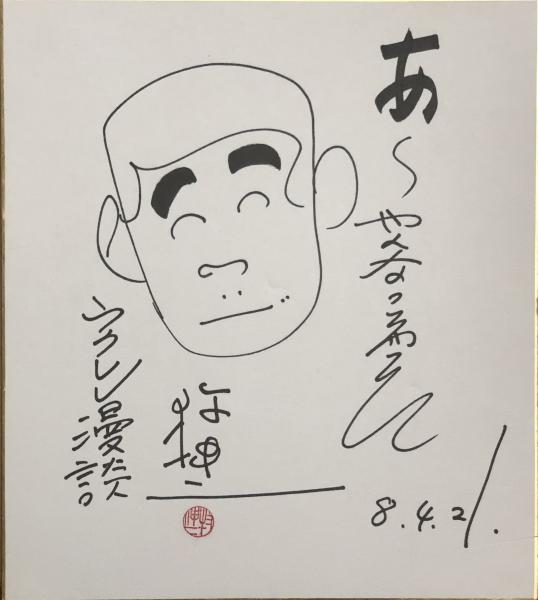 あ〜やんなっちゃった
ウクレレ漫談
牧伸二
8.4.21.